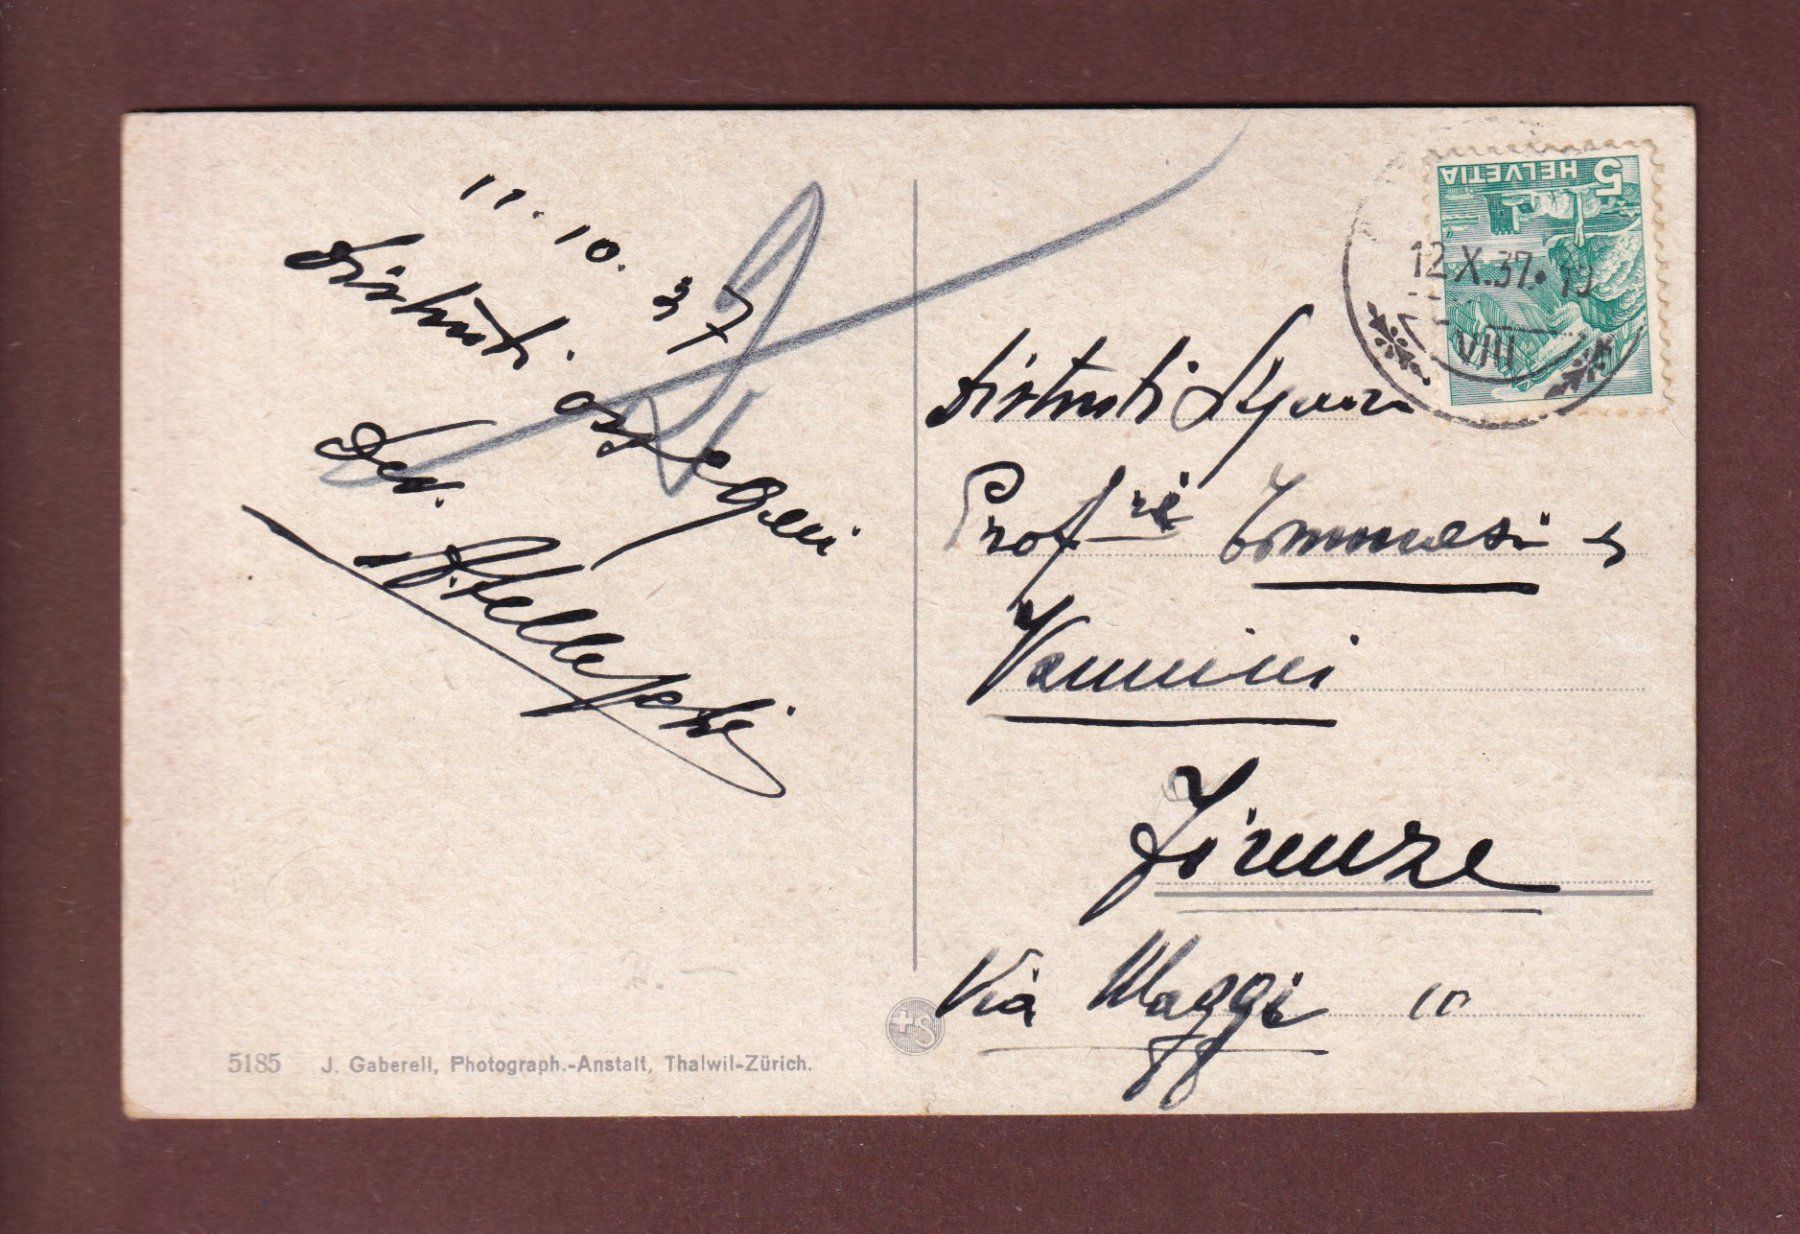 11.10.37
Distinti ossequi
Dev.
Distinti Signori
Prof.ri Tommasi e
Vannini
Firenze
Via Maggi 10
5 HELVETIA
12 X.37. 19
VIII
+S
5185 J. Gaberell, Photograph.-Anstalt, Thalwil-Zürich.